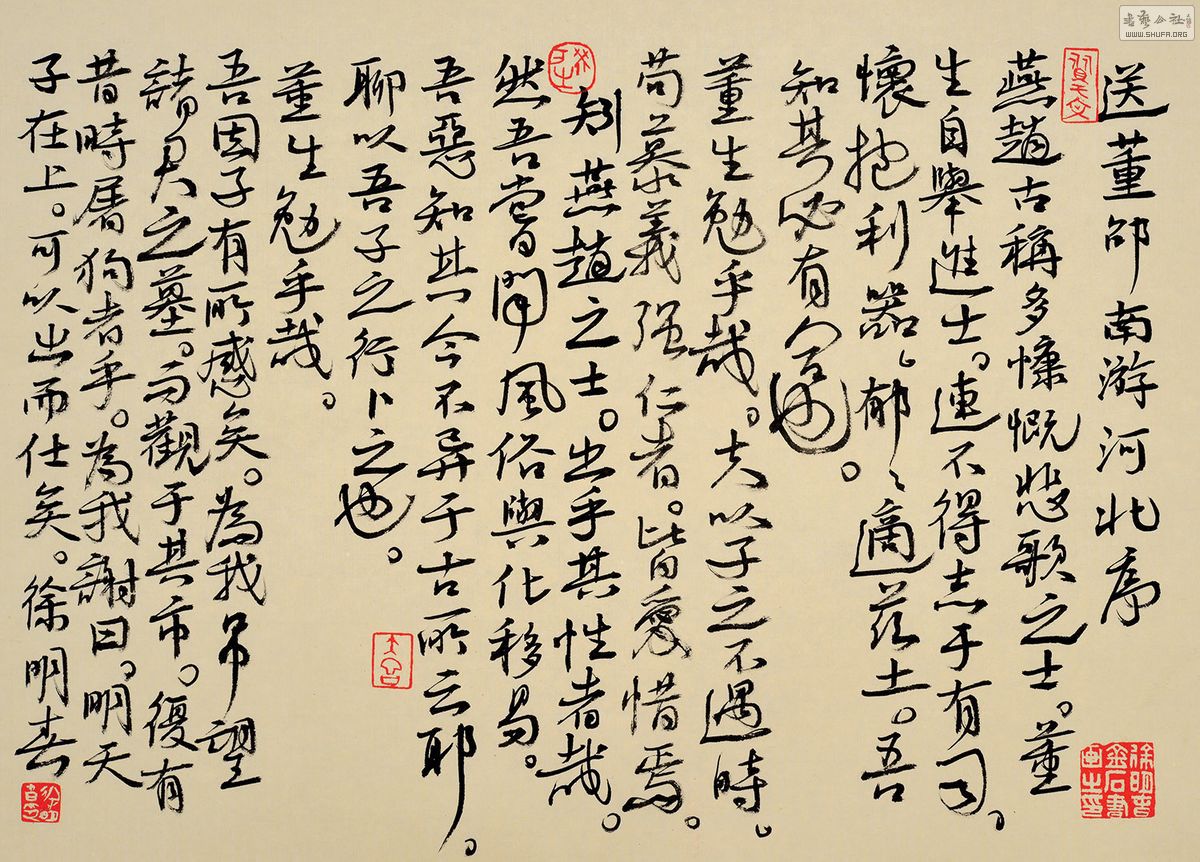 送董邵南游河北序
燕趙古稱多慷慨悲歌之士。董
生自舉進士。連不得志于有司。
懷抱利器。郁々適茲土。吾
知其必有合也。
董生勉乎哉。夫以子之不遇時。
苟慕義强仁者。皆愛惜焉。
矧燕趙之士。出乎其性者哉。
然吾嘗聞風俗與化移易。
吾惡知其今不异于古所云耶。
聊以吾子之行卜之也。
董生勉乎哉。
吾因子有所感矣。為我吊望
諸君之墓。而觀于其市。復有
昔時屠狗者乎。為我謝曰。明天
子在上。可以出而仕矣。徐明春
書藝公社
WWW.SHUFA.ORG